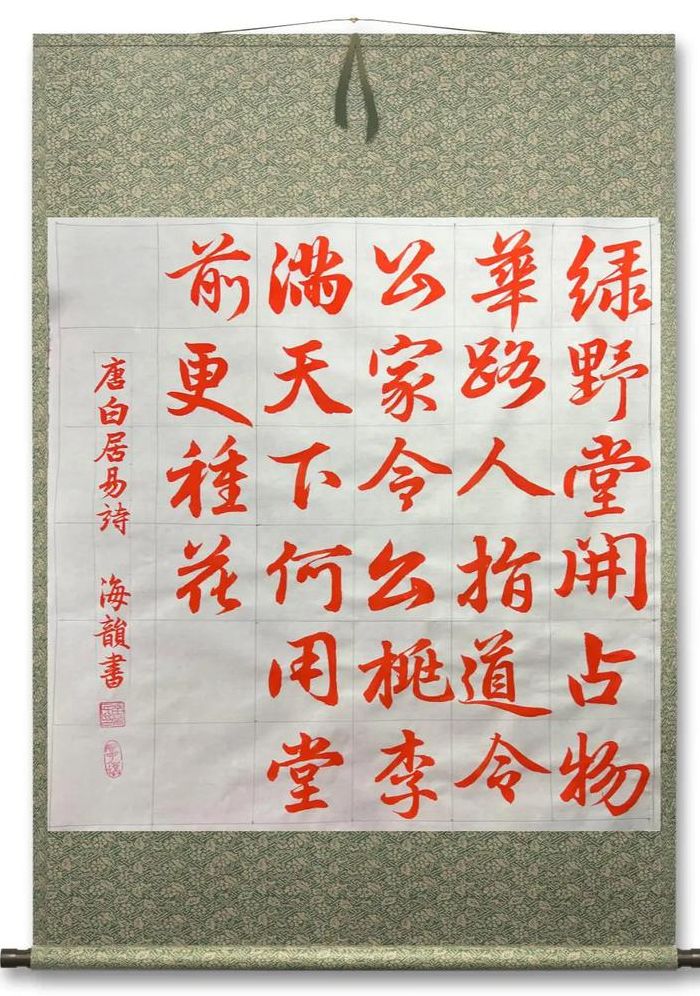 绿野堂開占物
華路人指道令
公家令公桃李
满天下何用堂
前更種花
唐白居易詩 海韻書